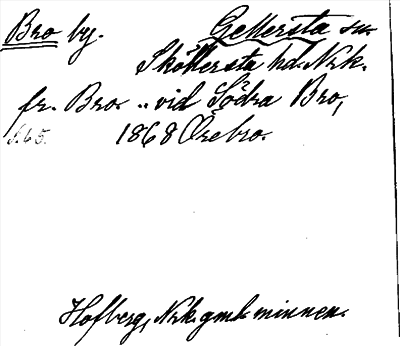 Bro by. Gellersta sn
Sköllersta hd. Nrk.
fr. Bro. „ vid Södra Bro,
s. 65. 1868 Örebro.
Hofberg, Nrk. gml. minnen.